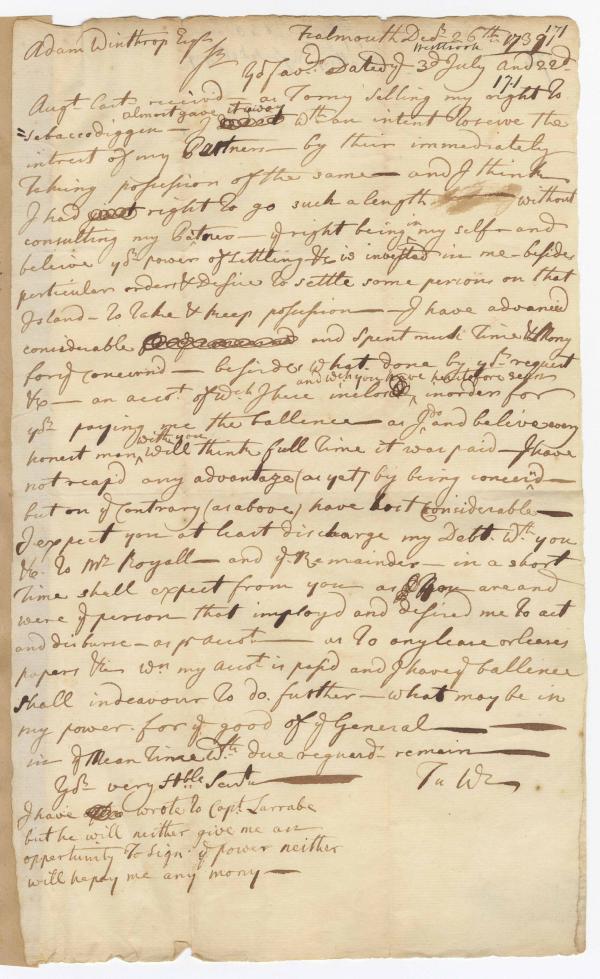 Adam Winthrop Esqr Falmouth Decr 26th 1739 171
Westbrook
Yor favrs Dated ye 3d July and 22d
171
Augt last receivd - as to my selling my right to
almost gave it away
Sebaccodiggin - I wth an intent to serve the
intrest of my Partners - by their immediately
taking possession of the same - and I think
I had right to go such a length - without
consulting my Patners - ye right being in my self - and
beleive yor power of settling &c is invested in me - besides
particular orders & desire to settle some persons on that
Island - to take & keep possession - I have advanced
considerable and spent much time & Mony
for ye concernd - besides what done by yor request
and wch you have heretofore seen
&c - an accot of wch I here inclose in order for
yor paying me the ballence - as I do and beleive every
with you
honest man will think full time it was paid - I have
not reap'd any advantage (as yet) by being concernd -
but on ye contrary (as above) have lost considerable -
I expect you at least discharge my Debt wth you
&c to Mr Royall - and ye Remainder - in a short
time shall expect from you as you are and
were ye person that imployd and desired me to act
and disburse - as pr accot - as to any lease or leases
papers &c wn my accot is paid and I have ye ballence
shall indeavour to do further - what may be in
my power for ye good of ye General
in ye mean time wth due reguard remain
Yor very Hble Servt T W
I have wrote to Capt Larrabe
but he will neither give me an
opportunity to sign ye power neither
will he pay me any mony -